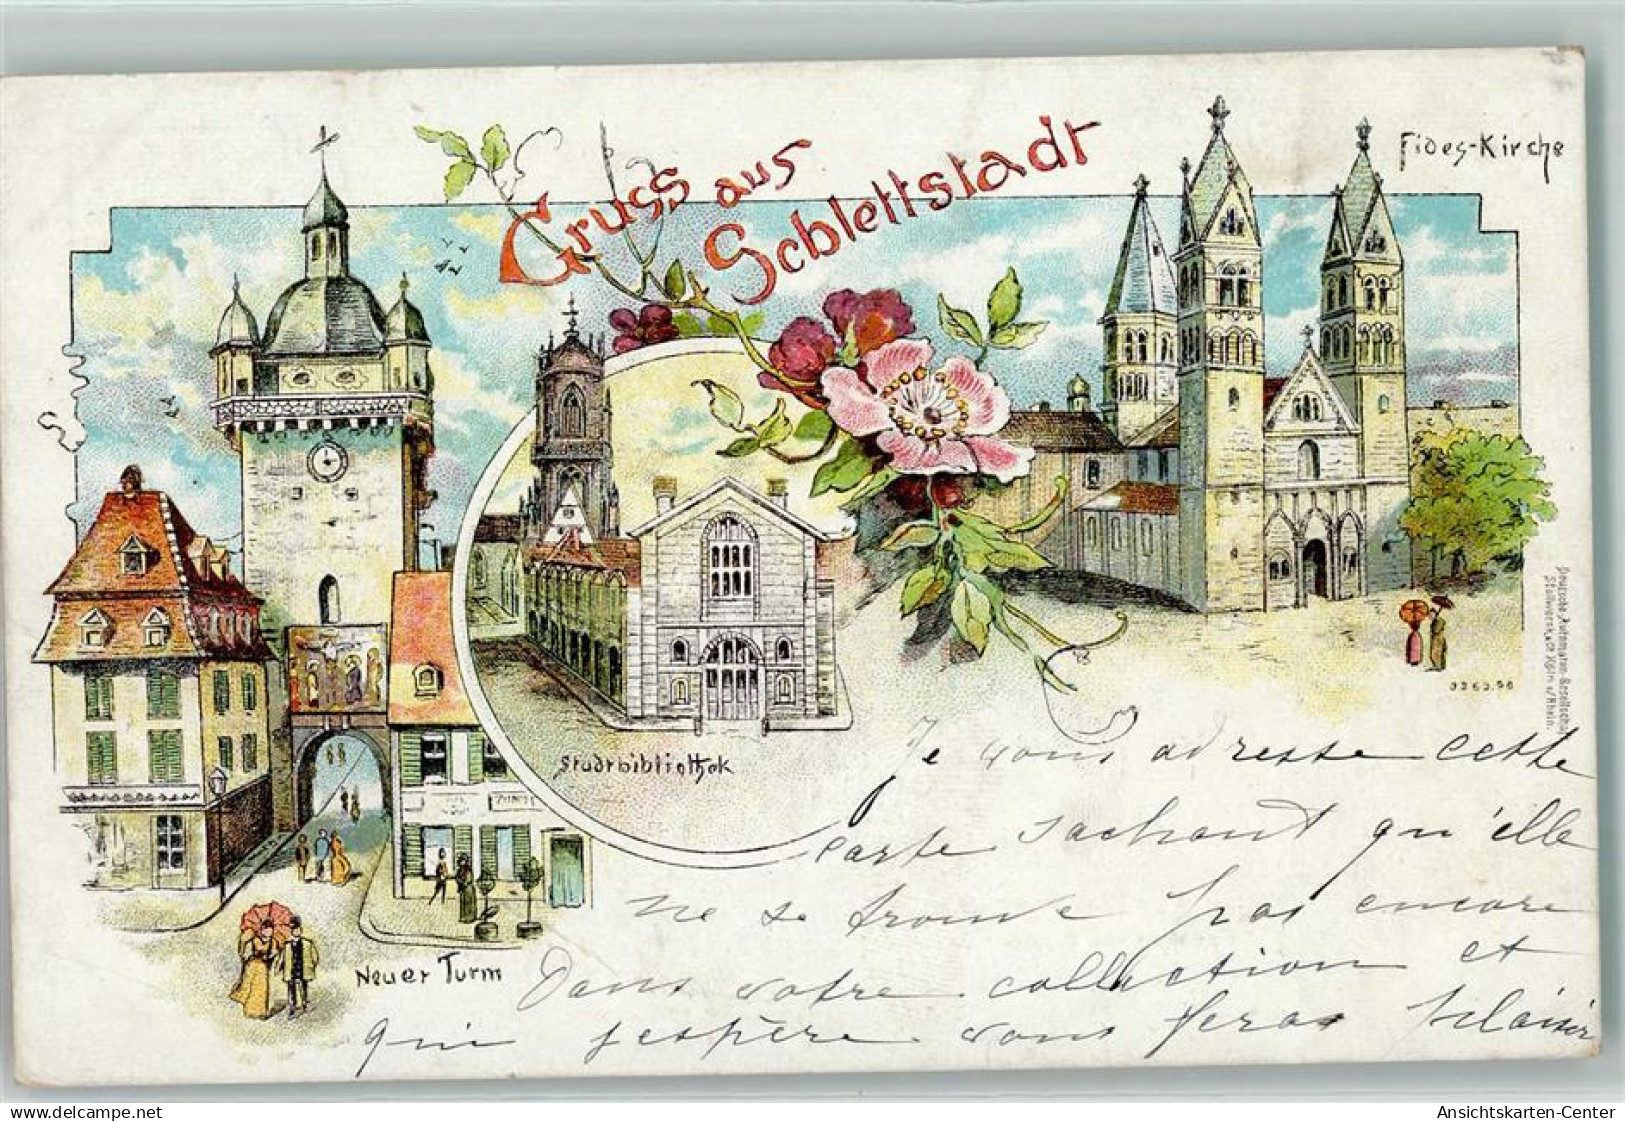 Gruss aus
Schlettstadt
Fides-Kirche
Stadtbibliothek
Neuer Turm
Deutsche Automaten-Gesellschaft
Stollwerck & Co Köln a/Rhein.
Je vous adresse cette
carte sachant qu'elle
ne se trouve pas encore
Dans votre collection et
qui j'espère vous feras plaisir
delcampe.net
Ansichtskarten-Center